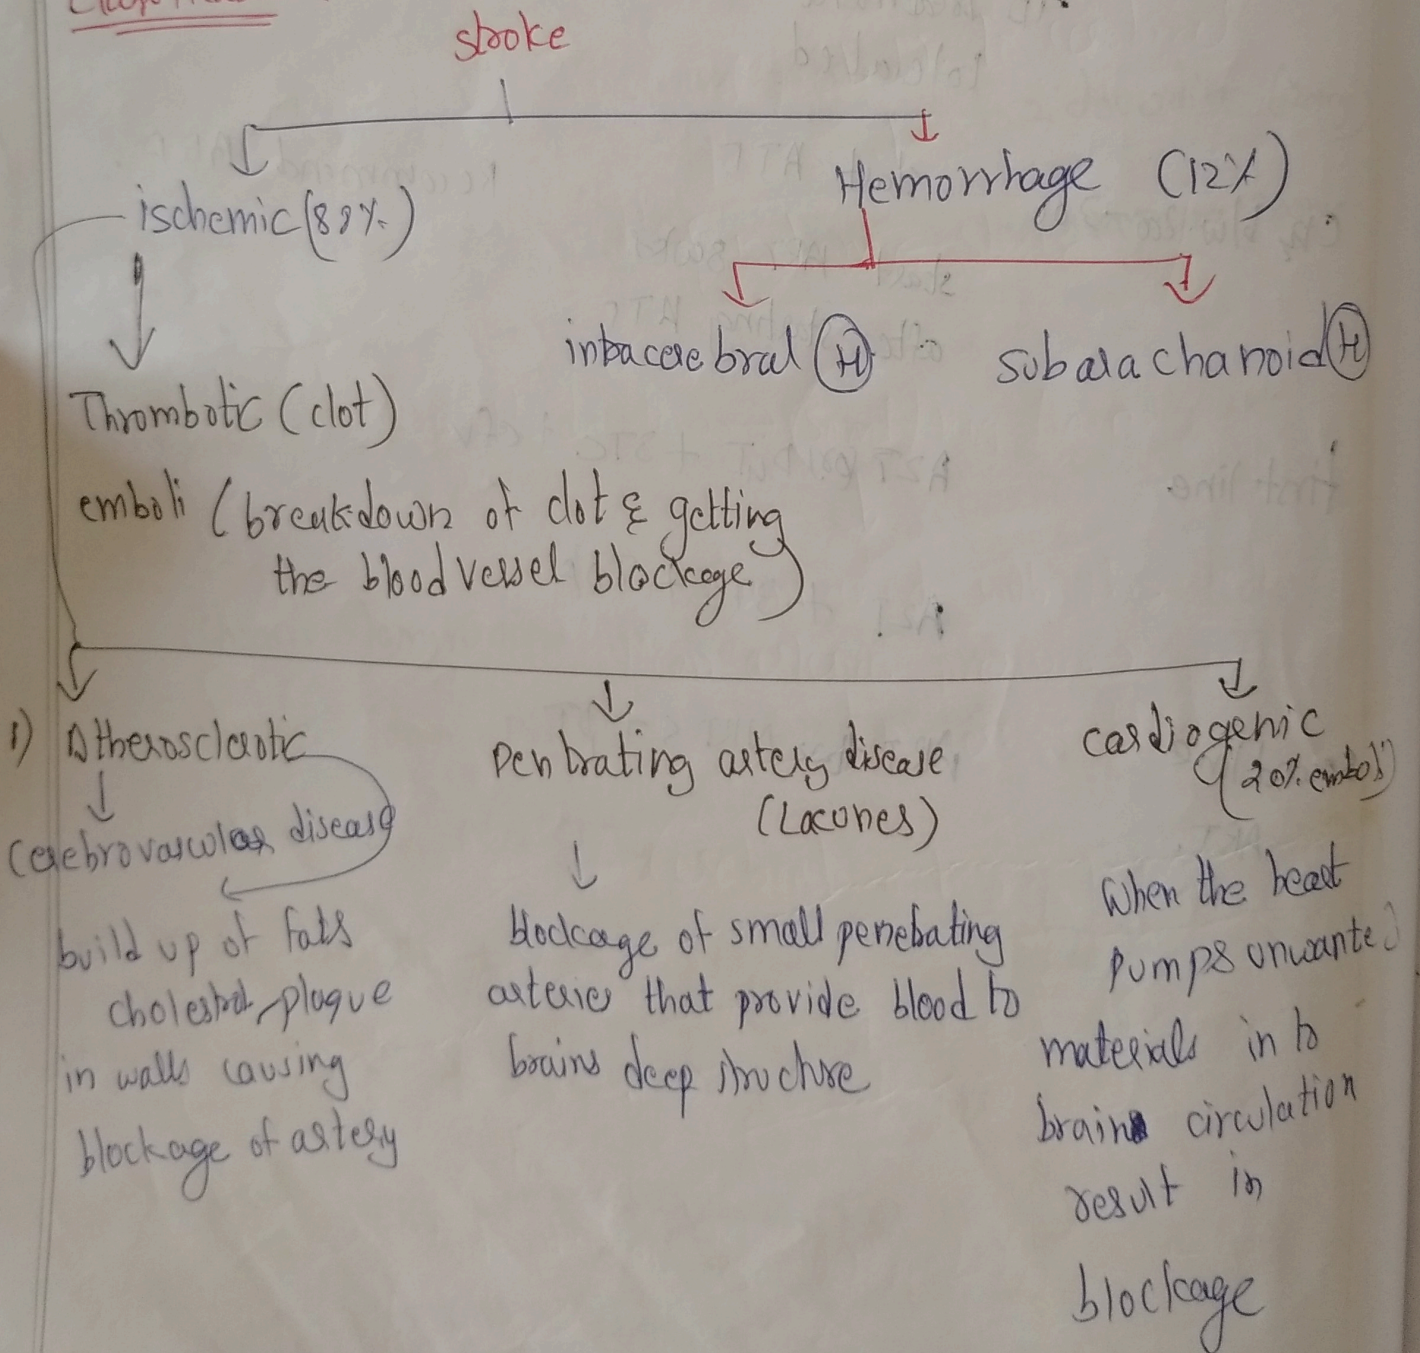 stroke
ischemic (88%)
Hemorrhage (12%)
intracerebral (H)
subarachanoid (H)
Thrombotic (clot)
emboli (breakdown of clot & getting
the blood vessel blockage)
1) Atherosclerotic
cerebrovascular disease
build up of fats
cholestrol, plaque
in walls causing
blockage of artery
Pentrating artery disease
(Lacunes)
blockage of small penetrating
arteries that provide blood to
brains deep structure
cardiogenic
(20% emboli)
When the heart
pumps unwanted
materials in to
brain circulation
result in
blockage